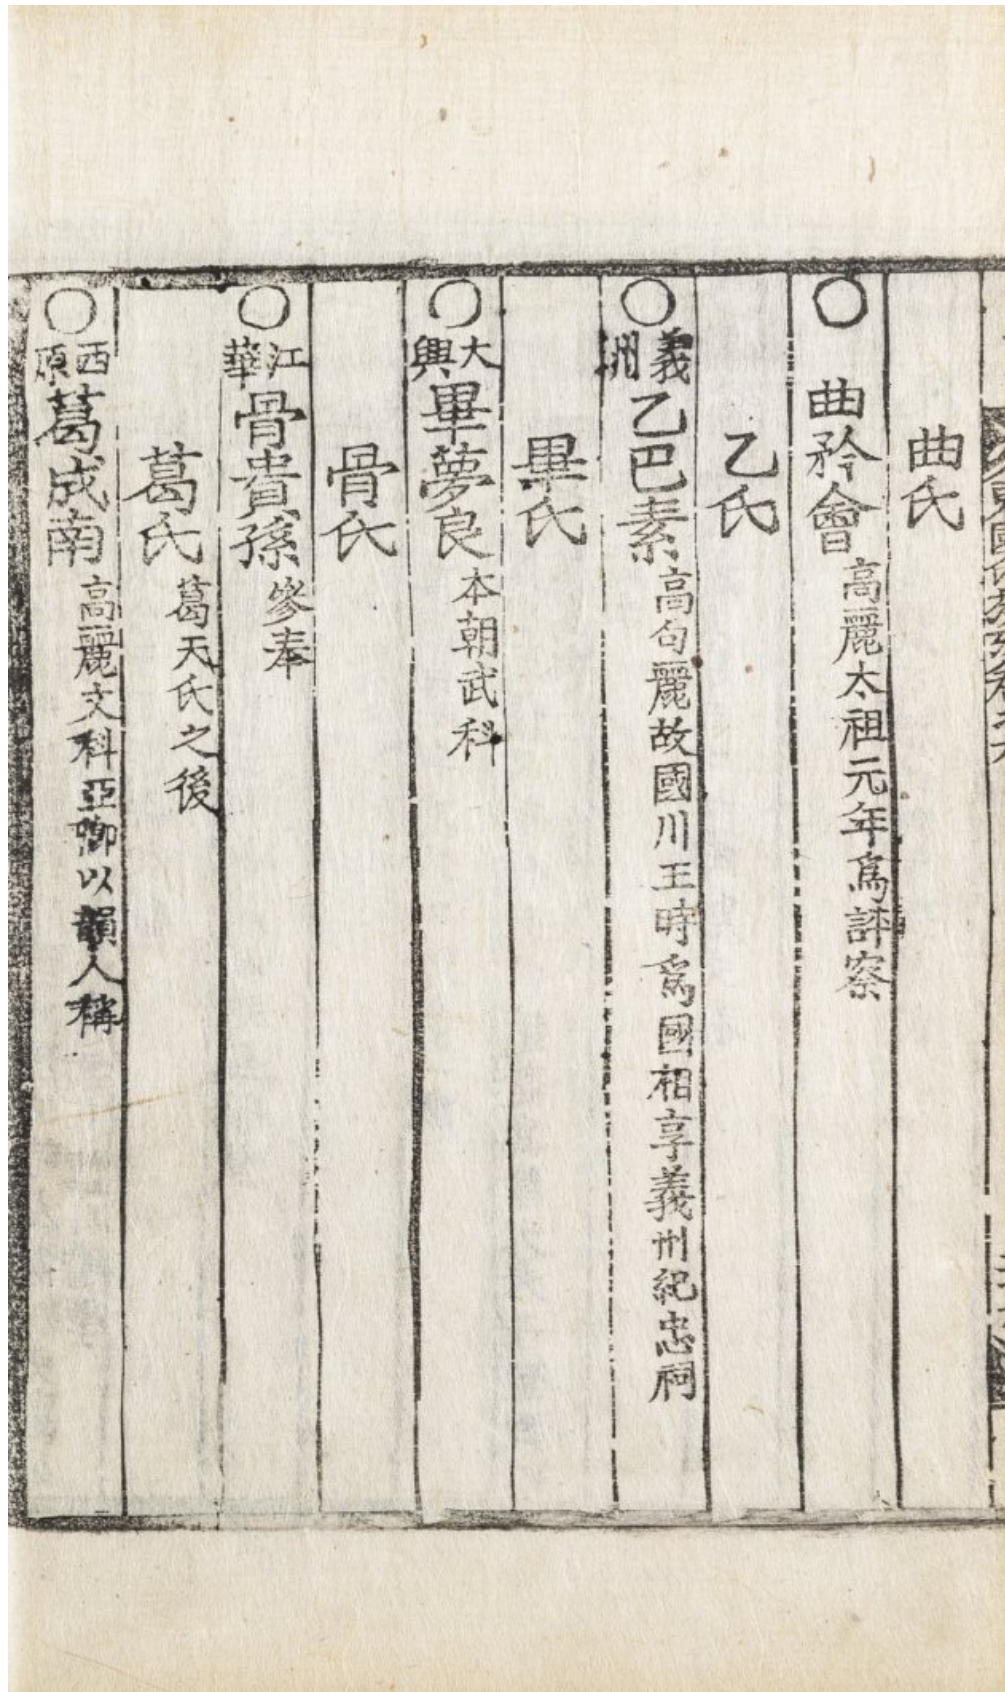 曲氏
○曲矜會高麗太祖元年爲評察
乙氏
○義州乙巴素高句麗故國川王時爲國相享義州紀忠祠
畢氏
○大興畢夢良本朝武科
骨氏
○江華骨貴孫參奉
葛氏葛天氏之後
○西原葛成南高麗文科亞卿以韻人稱